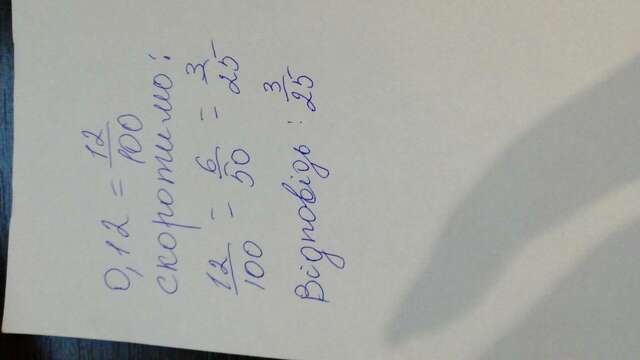 0,12 = 12/100
скоротимо:
12/100 = 6/50 = 3/25
Відповідь : 3/25